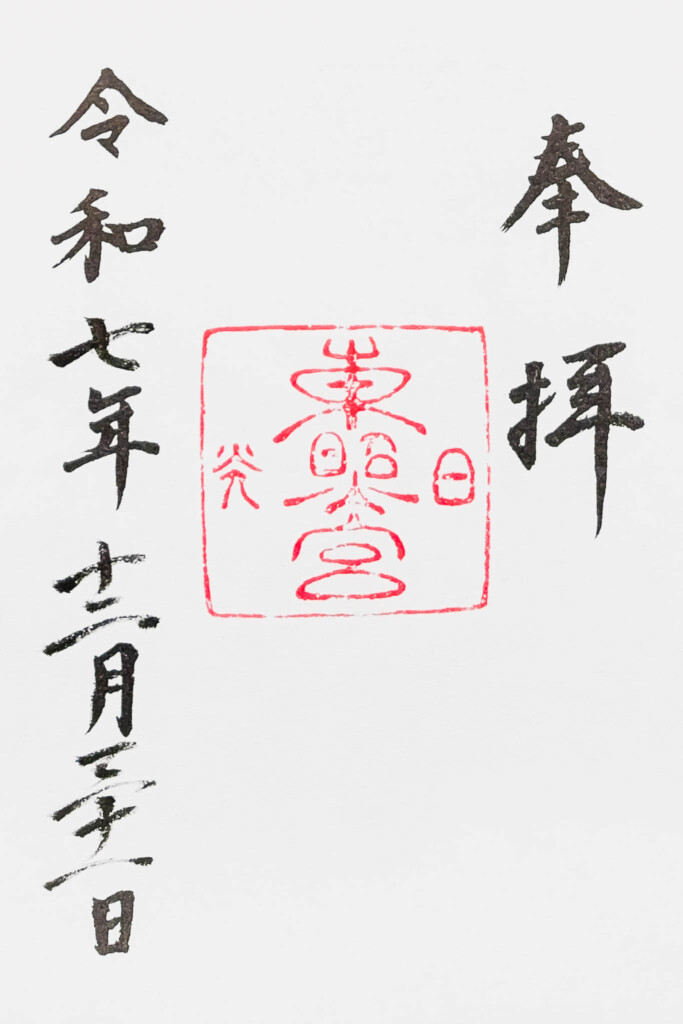 奉拝
日光
東照宮
令和七年十二月三十一日